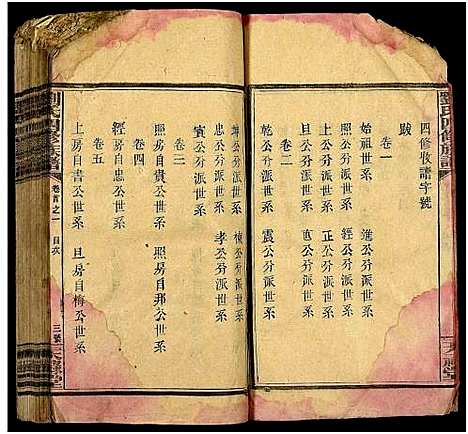 劉氏四修族譜
四修收譜字號
跋
卷一
始祖世系 進公分派世系
照公分派世系 經公分派世系
上公分派世系 正公分派世系
卷二 旦公分派世系
乾公分派世系 震公分派世系
坤公分派世系 棟公分派世系
忠公分派世系 孝公分派世系
賓公分派世系
卷三
照房自貴公世系 照房自邦公世系
卷四
經房自忠公世系
卷五
上房自書公世系 旦房自梅公世系
劉氏四修族譜 卷首之一 目次